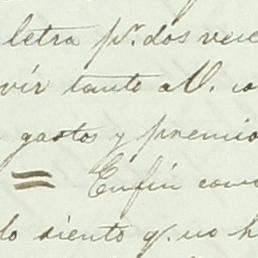 letra pr. dos vece
vir tanto a V. co
gastos y premio
= Enfin como
lo siento q. no h